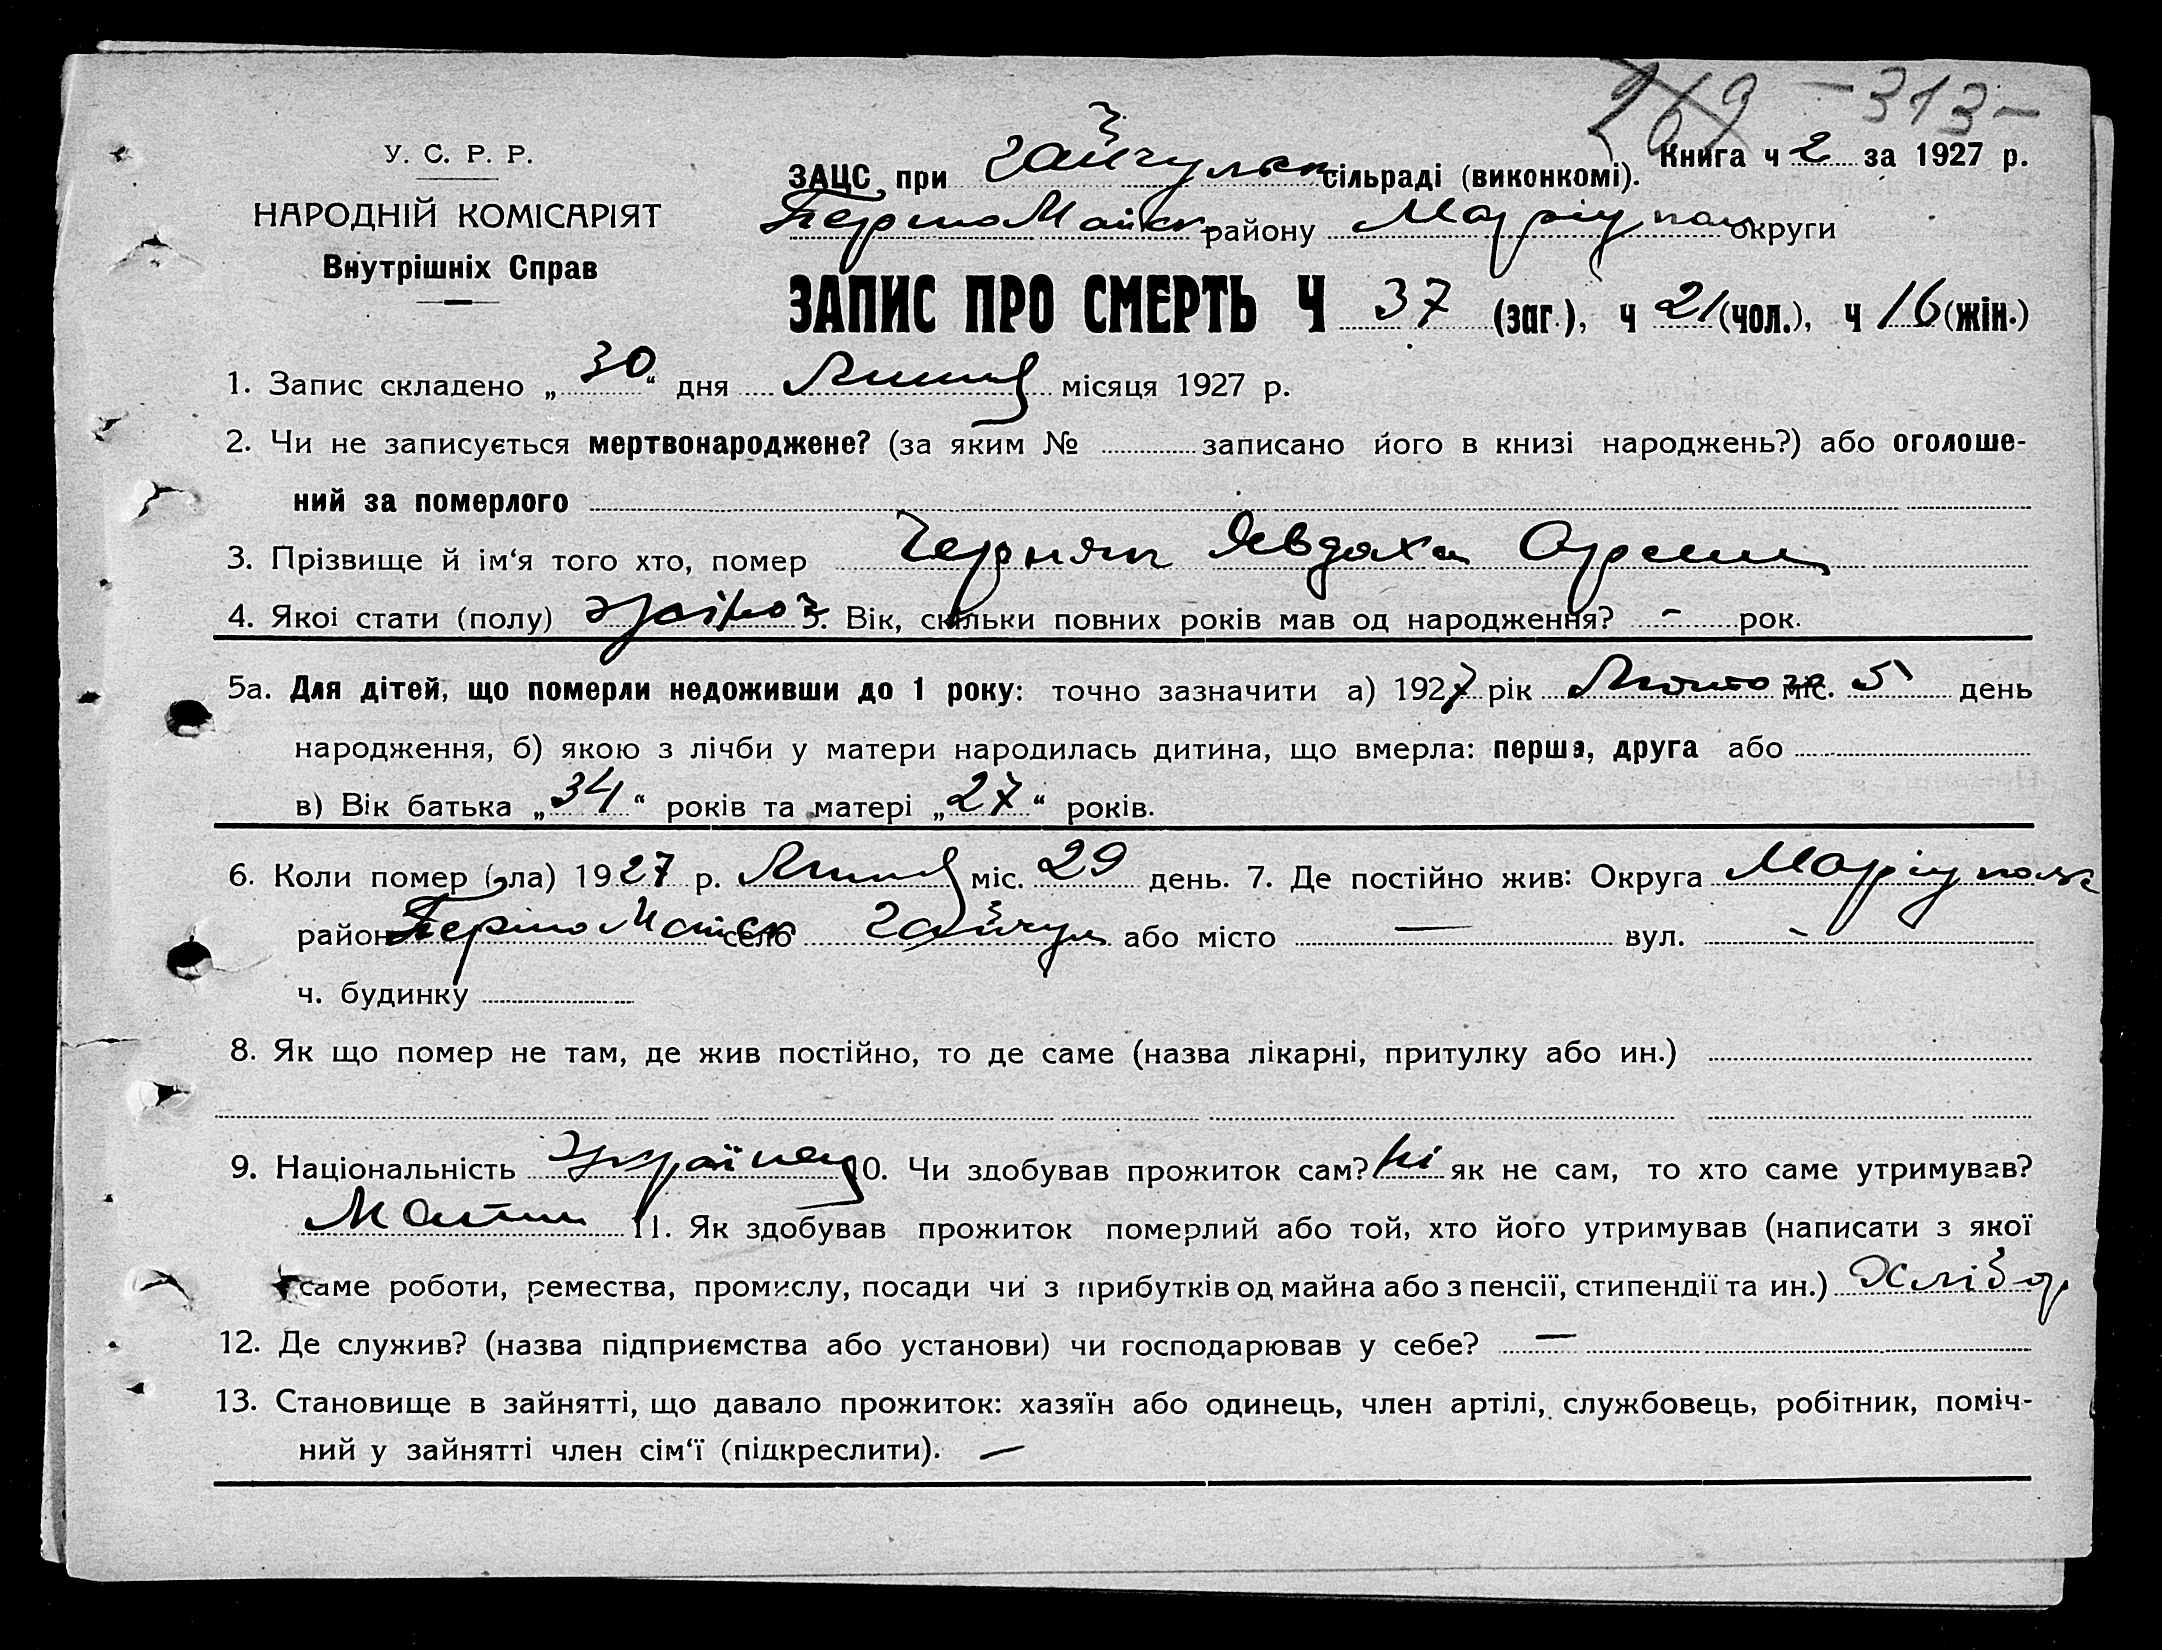 269 — 313 —
У. С. Р. Р.
НАРОДНІЙ КОМІСАРІЯТ
Внутрішніх Справ
Книга ч 2 за 1927 р.
ЗАЦС при Гайчульск сільраді (виконкомі).
ПершоМайск району Маріупол округи
ЗАПИС ПРО СМЕРТЬ Ч 37 (заг.), ч 21 (чол.), ч 16 (жін.)
1. Запис складено „30“ дня Липця місяця 1927 р.
2. Чи не записується мертвонароджене? (за яким № записано його в книзі народжень?) або оголоше-
ний за померлого
3. Прізвище й ім‘я того хто, помер Черняк Явдоха
4. Якої стати (полу) жіноч 5. Вік, скільки повних років мав од народження? - рок.
5а. Для дітей, що померли недоживши до 1 року: точно зазначити а) 1927 рік Лютого міс. 5 день
народження, б) якою з лічби у матери народилась дитина, що вмерла: перша, друга або
в) Вік батька „34“ років та матері „27“ років.
6. Коли помер (ла) 1927 р. Липця міс. 29 день. 7. Де постійно жив: Округа Маріупольск
район ПершоМайск село Гайчул або місто — вул. -
ч. будинку
8. Як що помер не там, де жив постійно, то де саме (назва лікарні, притулку або ин.)
9. Національність Українец 10. Чи здобував прожиток сам? Ні як не сам, то хто саме утримував?
Матин 11. Як здобував прожиток померлий або той, хто його утримував (написати з якої
саме роботи, ремества, промислу, посади чи з прибутків од майна або з пенсії, стипендії та ин.) Хлібор
12. Де служив? (назва підприємства або установи) чи господарював у себе? —
13. Становище в зайнятті, що давало прожиток: хазяїн або одинець, член артілі, службовець, робітник, поміч-
ний у зайнятті член сім‘ї (підкреслити). —